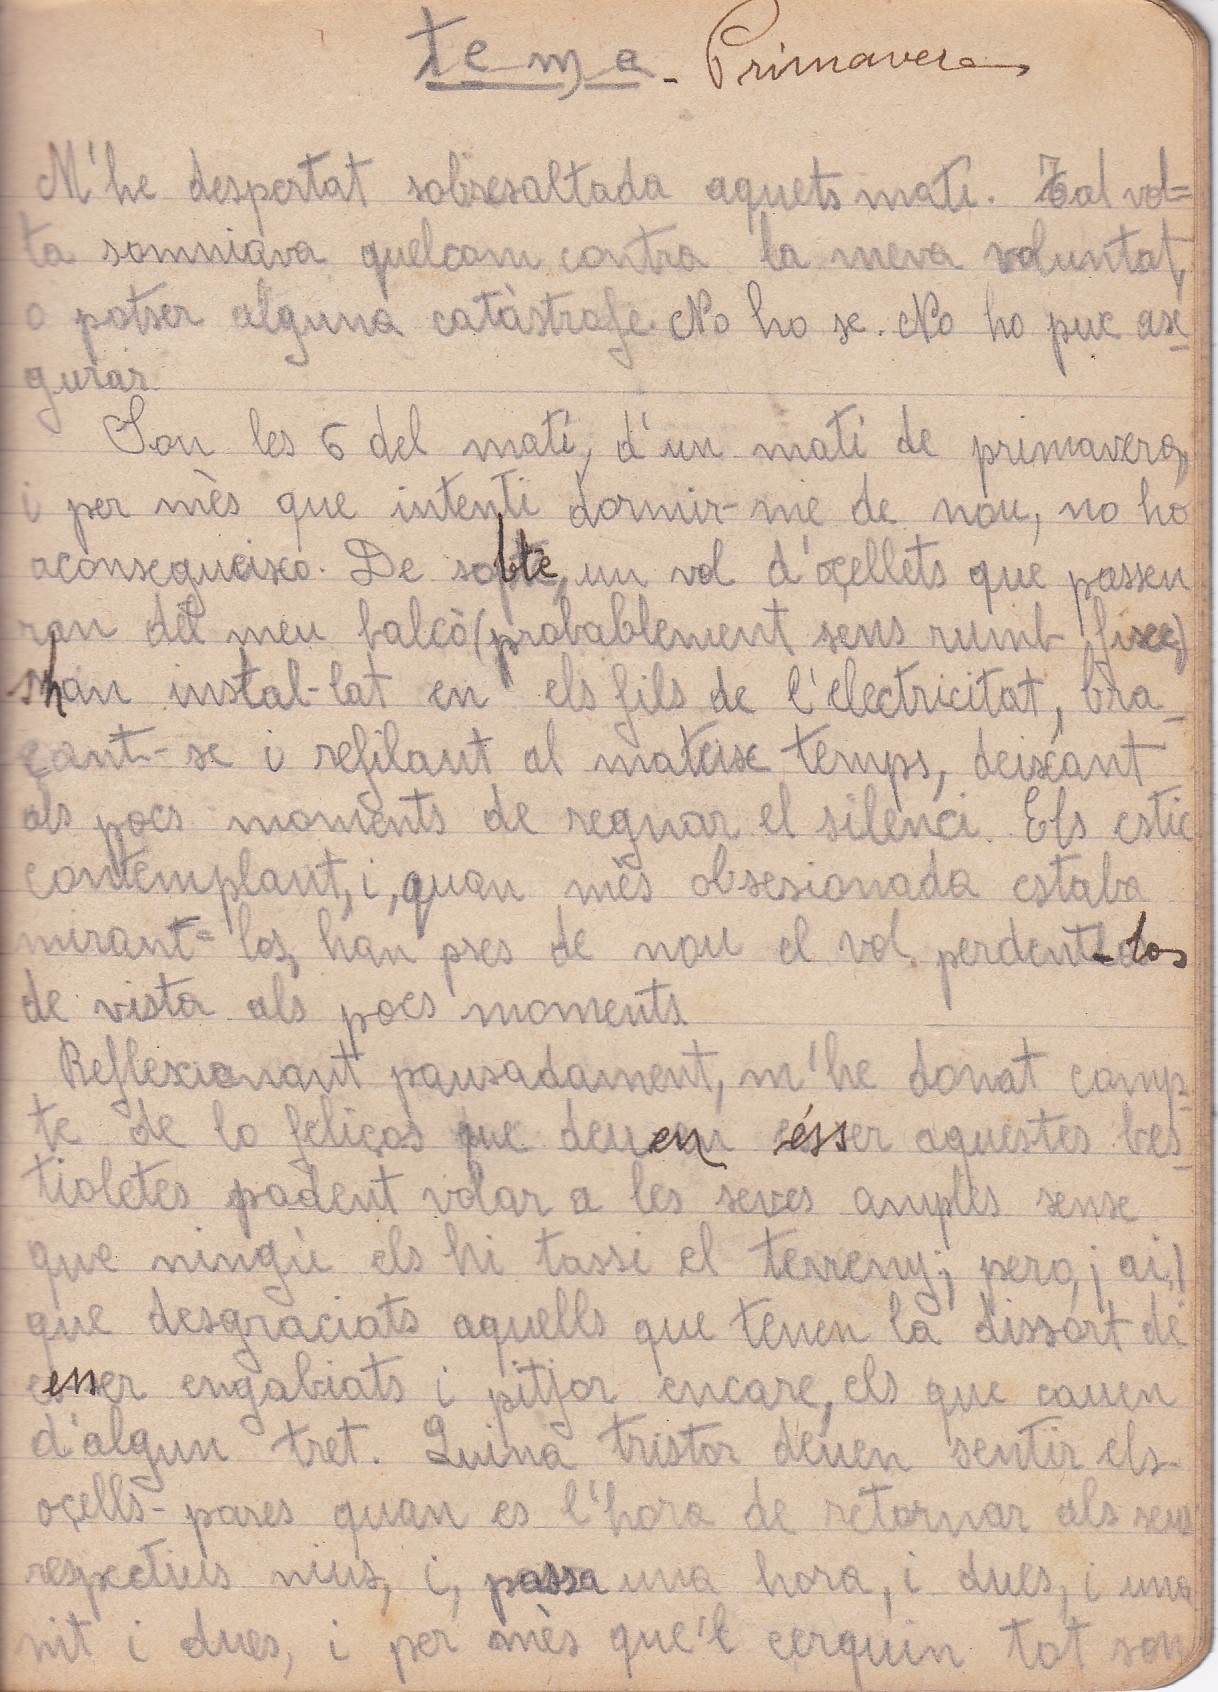 tema - Primavera
M'he despertat sobresaltada aquets matí. Tal vol=
ta somniava quelcom contra la meva voluntat,
o potser alguna catàstrofe. No ho se. No ho puc ase-
gurar.
Son les 6 del matí, d'un matí de primavera,
i per mès que intenti dormir-me de nou, no ho
aconsegueixo. De sobte, un vol d'oçellets que passen
ran del meu balcò (probablement sens rumb fixe)
s'han instal-lat en els fils de l'electricitat, bra-
çant-se i refilant al mateix temps, deixant
als pocs moments de regnar el silenci. Els estic
contemplant, i, quan mès obsesionada estaba
mirant=los, han pres de nou el vol, perdent-los
de vista als pocs moments.
Reflexionant pausadament, m'he donat comp-
te de lo feliços que deuen ésser aquestes bes-
tioletes podent volar a les seves amples sense
que ningù els hi tassi el terreny; pero, ¡ai!
que desgraciats aquells que tenen la dissort de
esser engabiats i pitjor encare, els que cauen
d'algun tret. Quina tristor deuen sentir els
oçells-pares quan es l'hora de retornar als seus
respectius nius, i, passa una hora, i dues, i una
nit i dues, i per mès que'l cerquin tot son